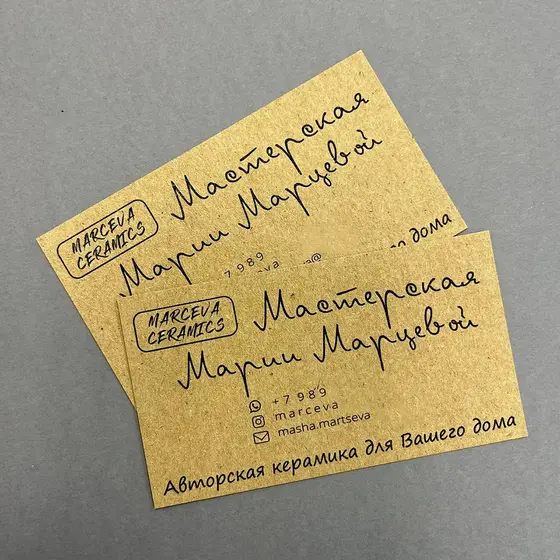 MARCEVA
CERAMICS
Мастерская
Марии Марцевой
7 989
дома
MARCEVA
CERAMICS
Мастерская
Марии Марцевой
+7 989
marceva
masha.martseva
Авторская керамика для Вашего дома